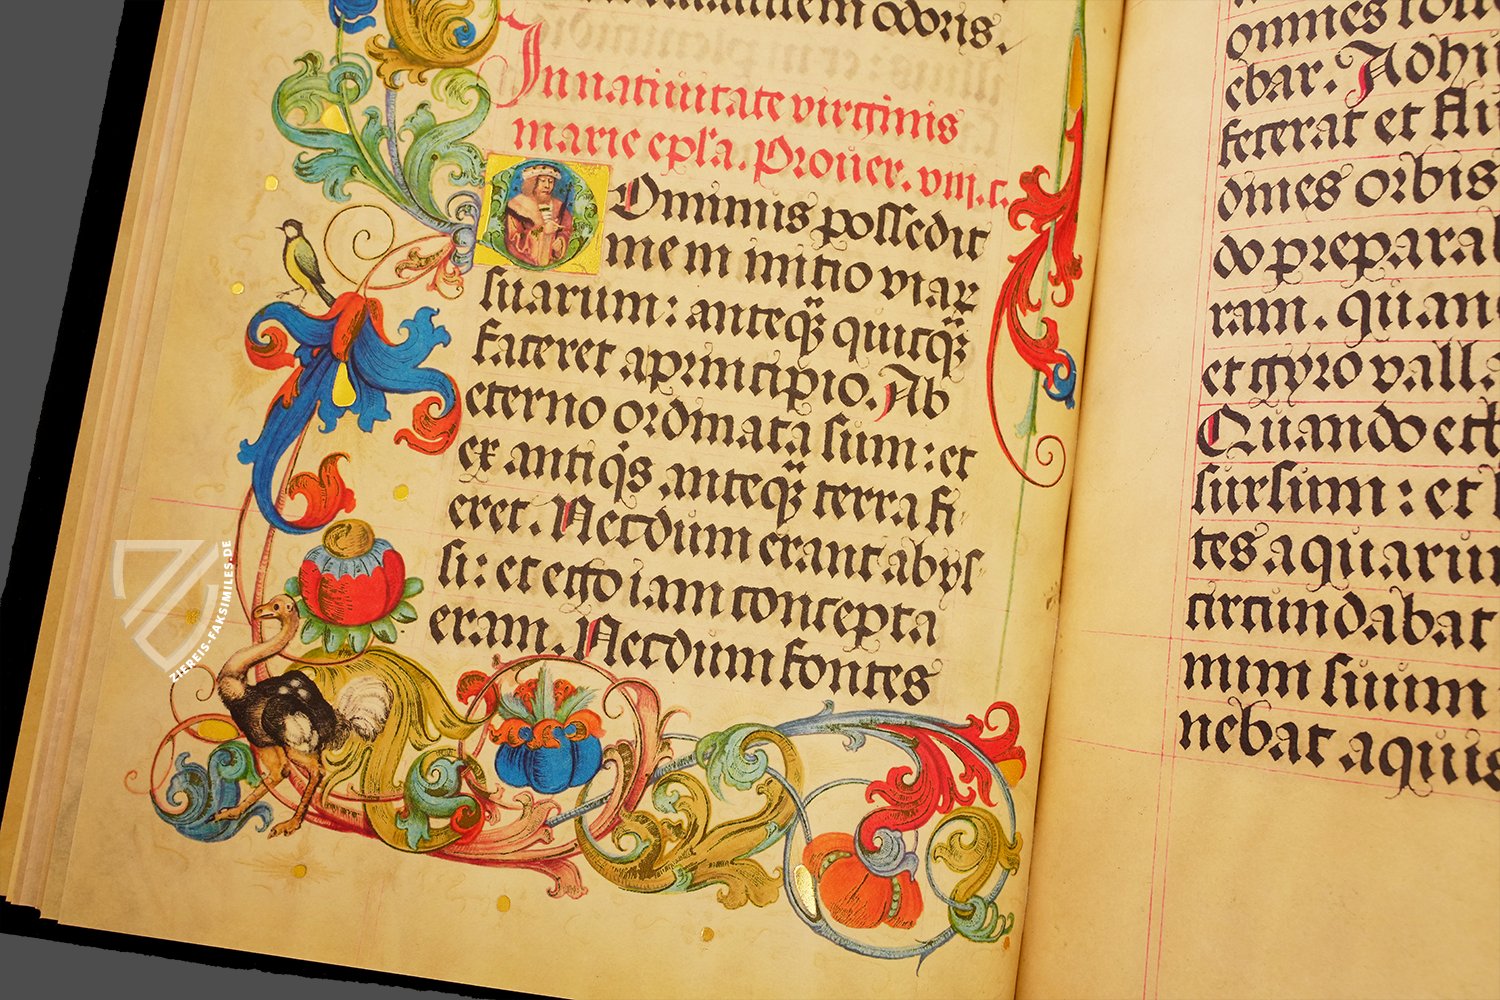 odoris.
In nativitate virginis
marie ep̄la. Prouer. viii. c.
Dominus possedit
me in initio viaꝝ
suarum: anteq̄ꝫ quicq̄ꝫ
faceret a principio. Ab
eterno ordinata sum: et
ex antiq̇s anteq̄ꝫ terra fi
eret. Necdum erant abys
si: et ego iam concepta
eram. Necdum fontes
omnes
ebar. Adhuc
fecerat et flu
dines orbis
do prepara
ram. quan
et gyro vall
Quando eth
sursum: et l
tes aquarum
circundabat
mum suum
nebat aquis
ZIEREIS-FAKSIMILES.DE